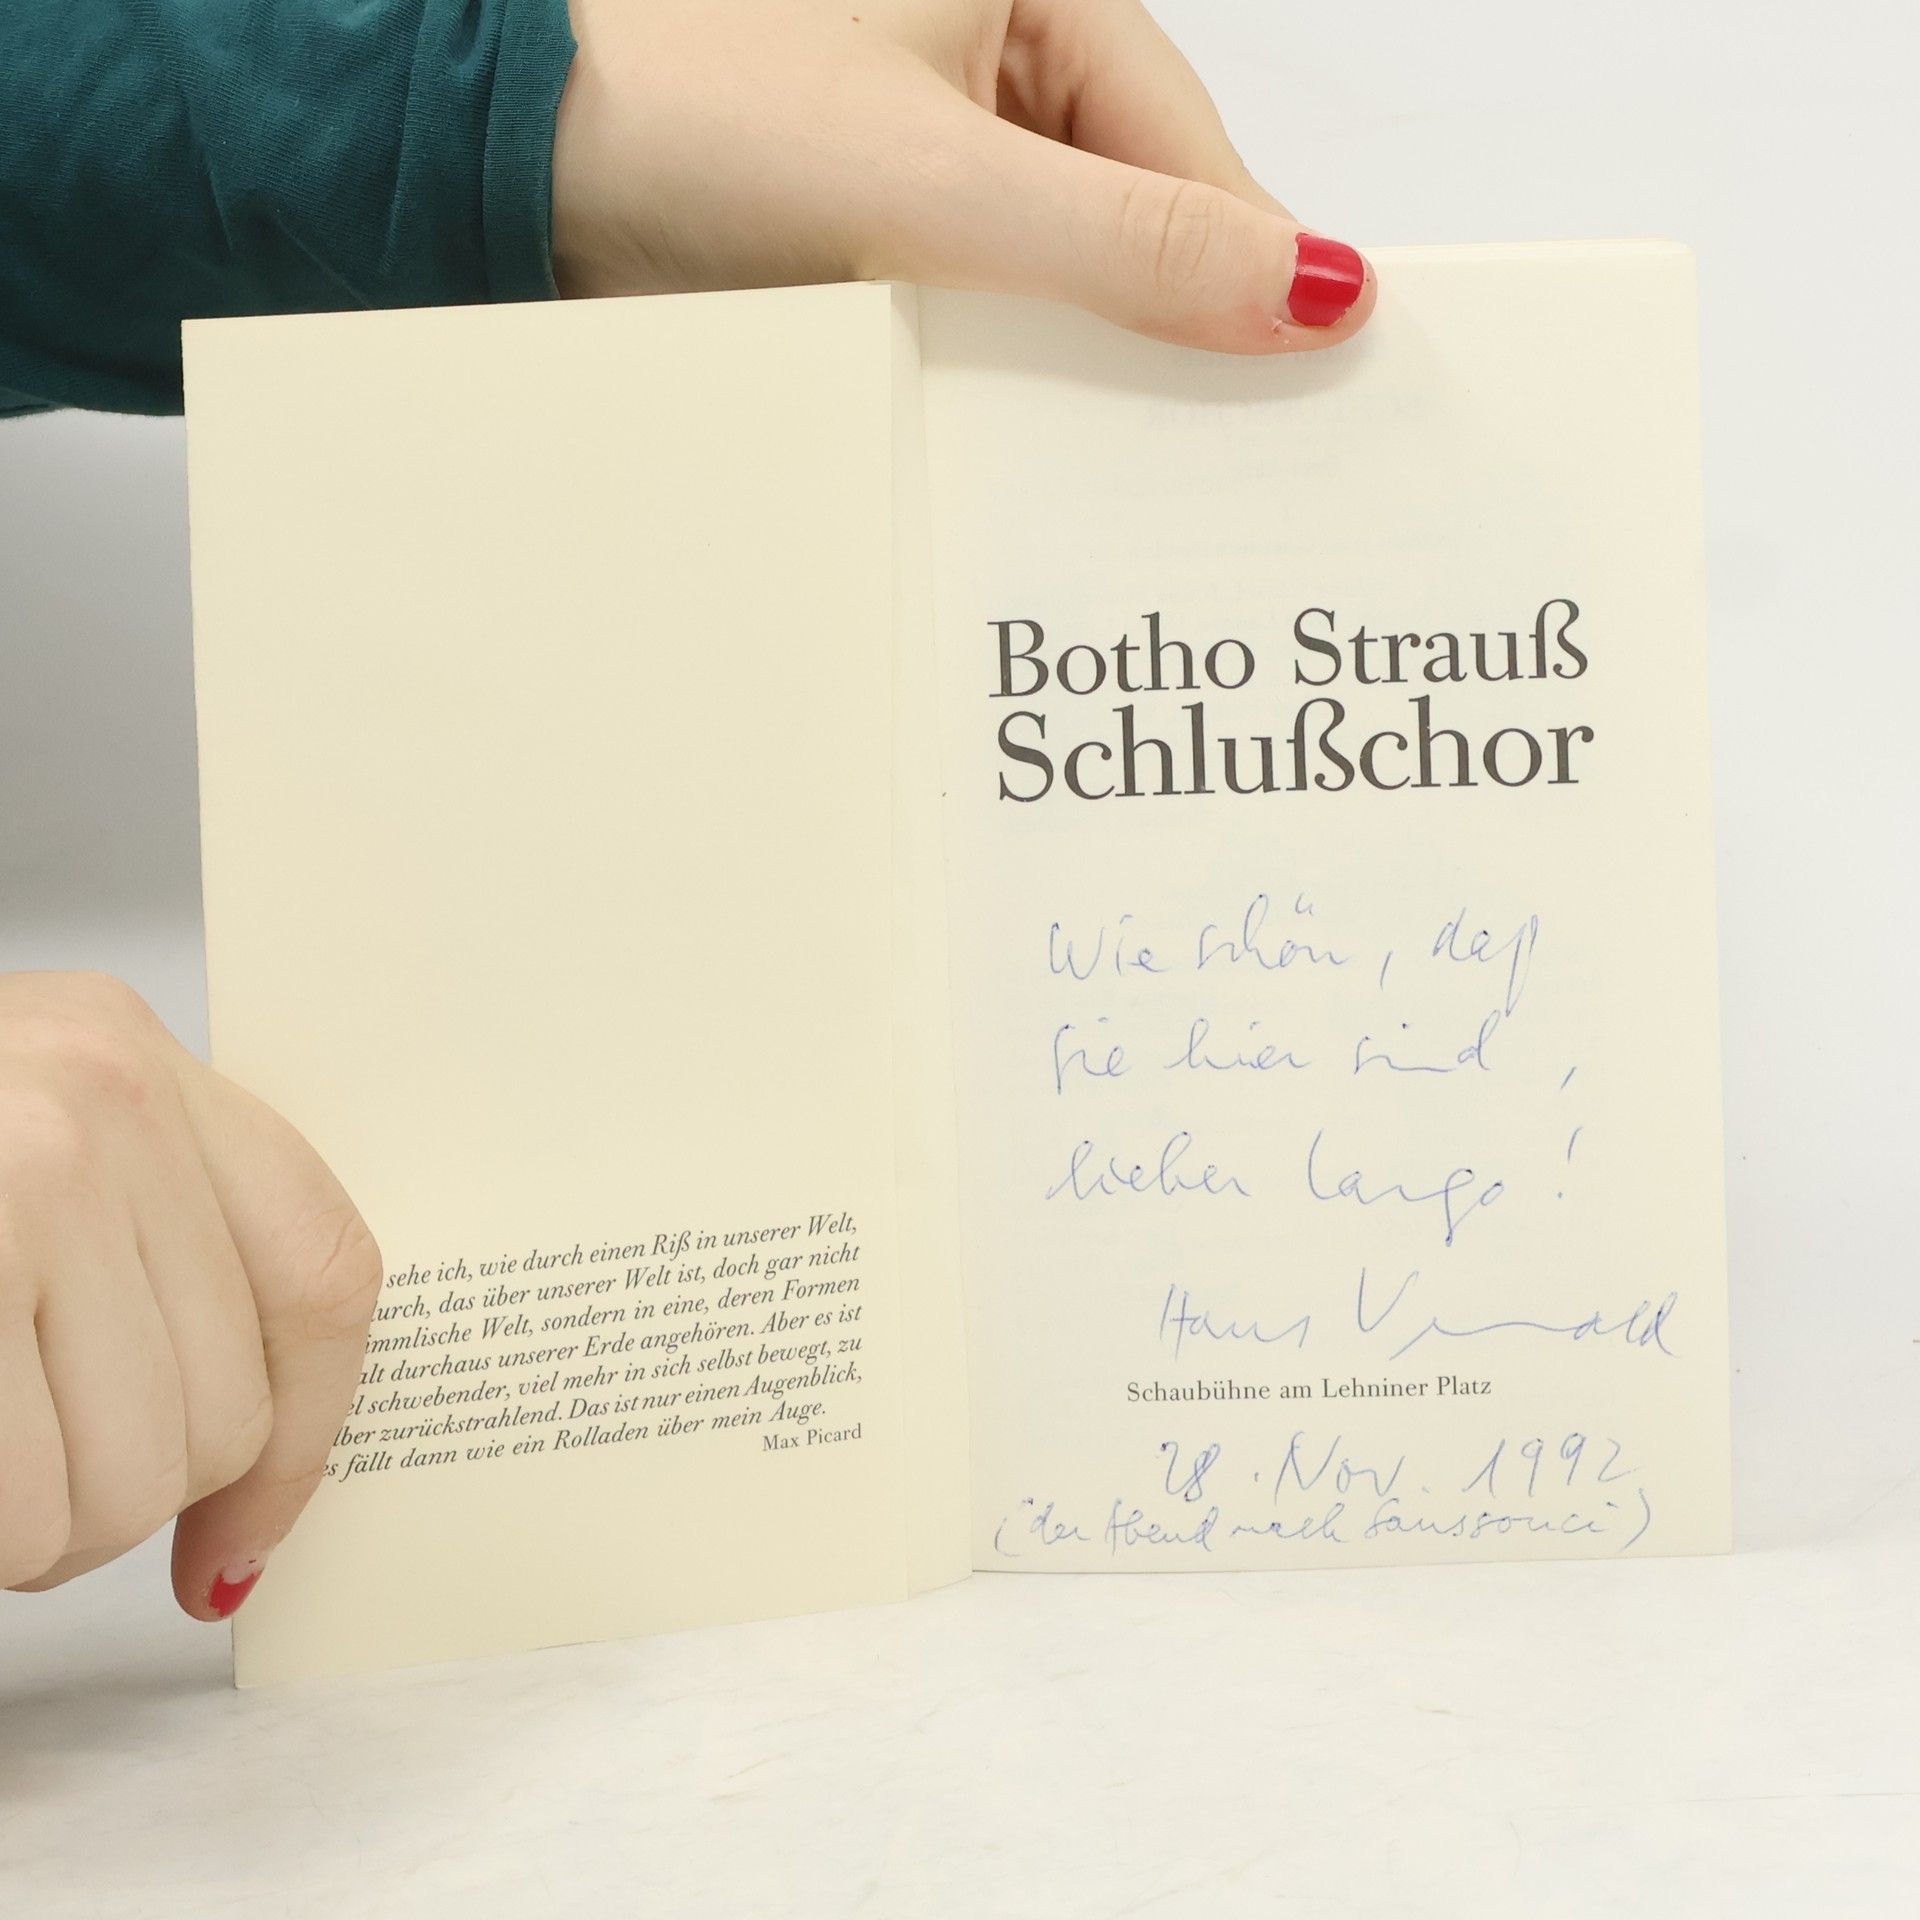 sehe ich, wie durch einen Riß in unserer Welt,
durch, das über unserer Welt ist, doch gar nicht
immlische Welt, sondern in eine, deren Formen
alt durchaus unserer Erde angehören. Aber es ist
el schwebender, viel mehr in sich selbst bewegt, zu
lber zurückstrahlend. Das ist nur einen Augenblick,
es fällt dann wie ein Rolladen über mein Auge.
Max Picard
Botho Strauß
Schlußchor
Wie schön, daß
Sie hier sind,
lieber Largo!
Hans
Schaubühne am Lehniner Platz
28. Nov. 1992
(der Abend nach Sanssouci)